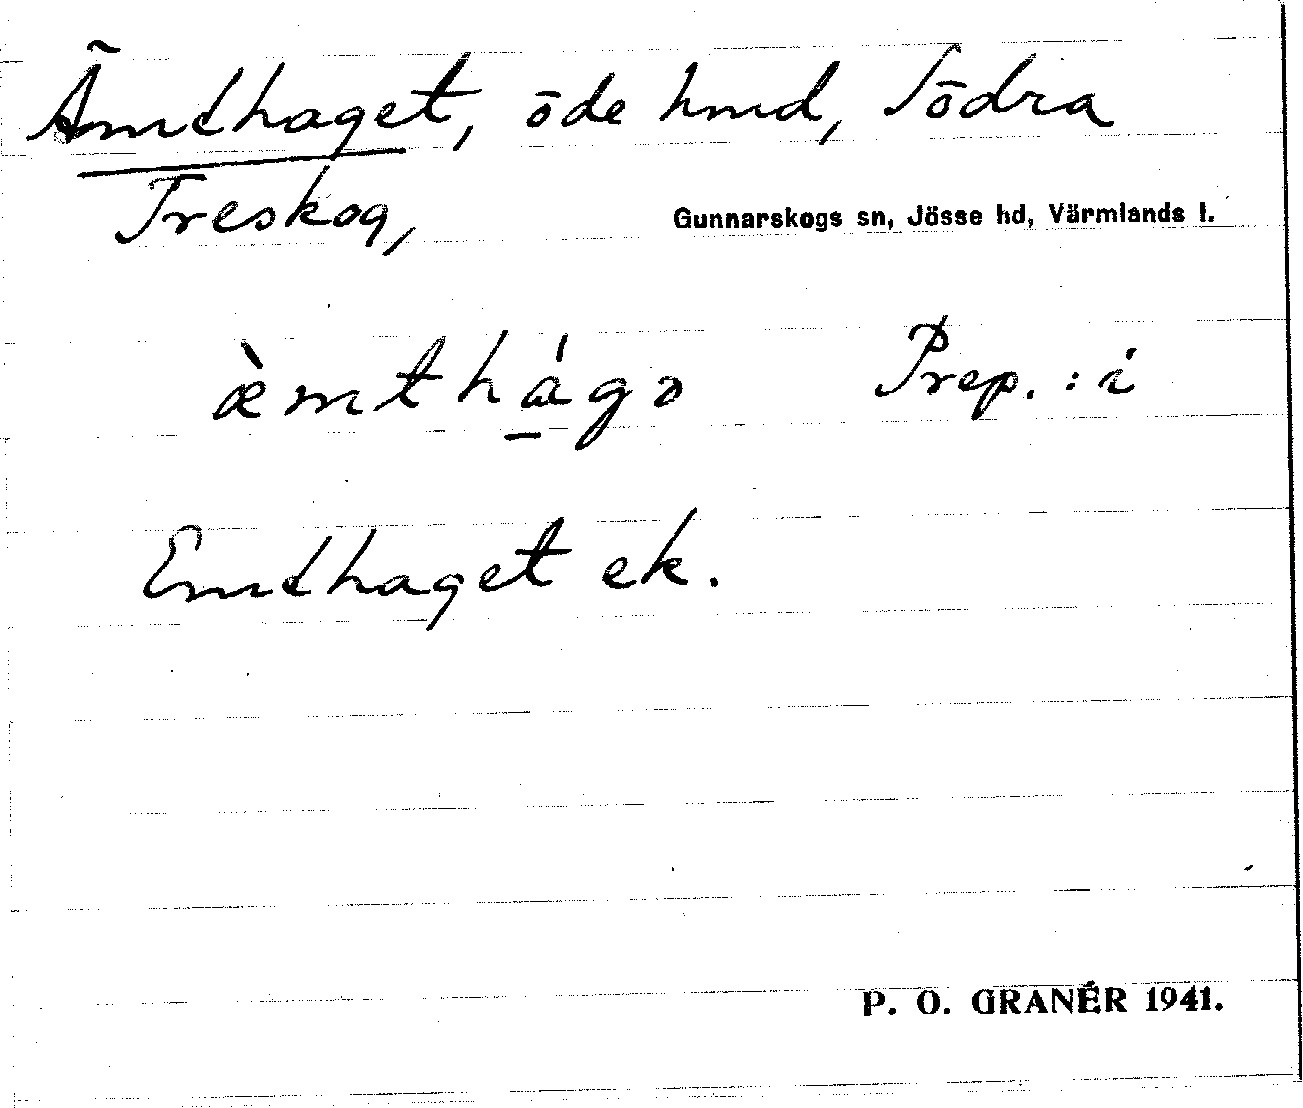 Ämthaget, öde hmd, Södra
Treskog,
Gunnarskogs sn, Jösse hd, Värmlands l.
æ̀mthá̱gə Prep. : i
Emthaget ek.
P. O. GRANÉR 1941.